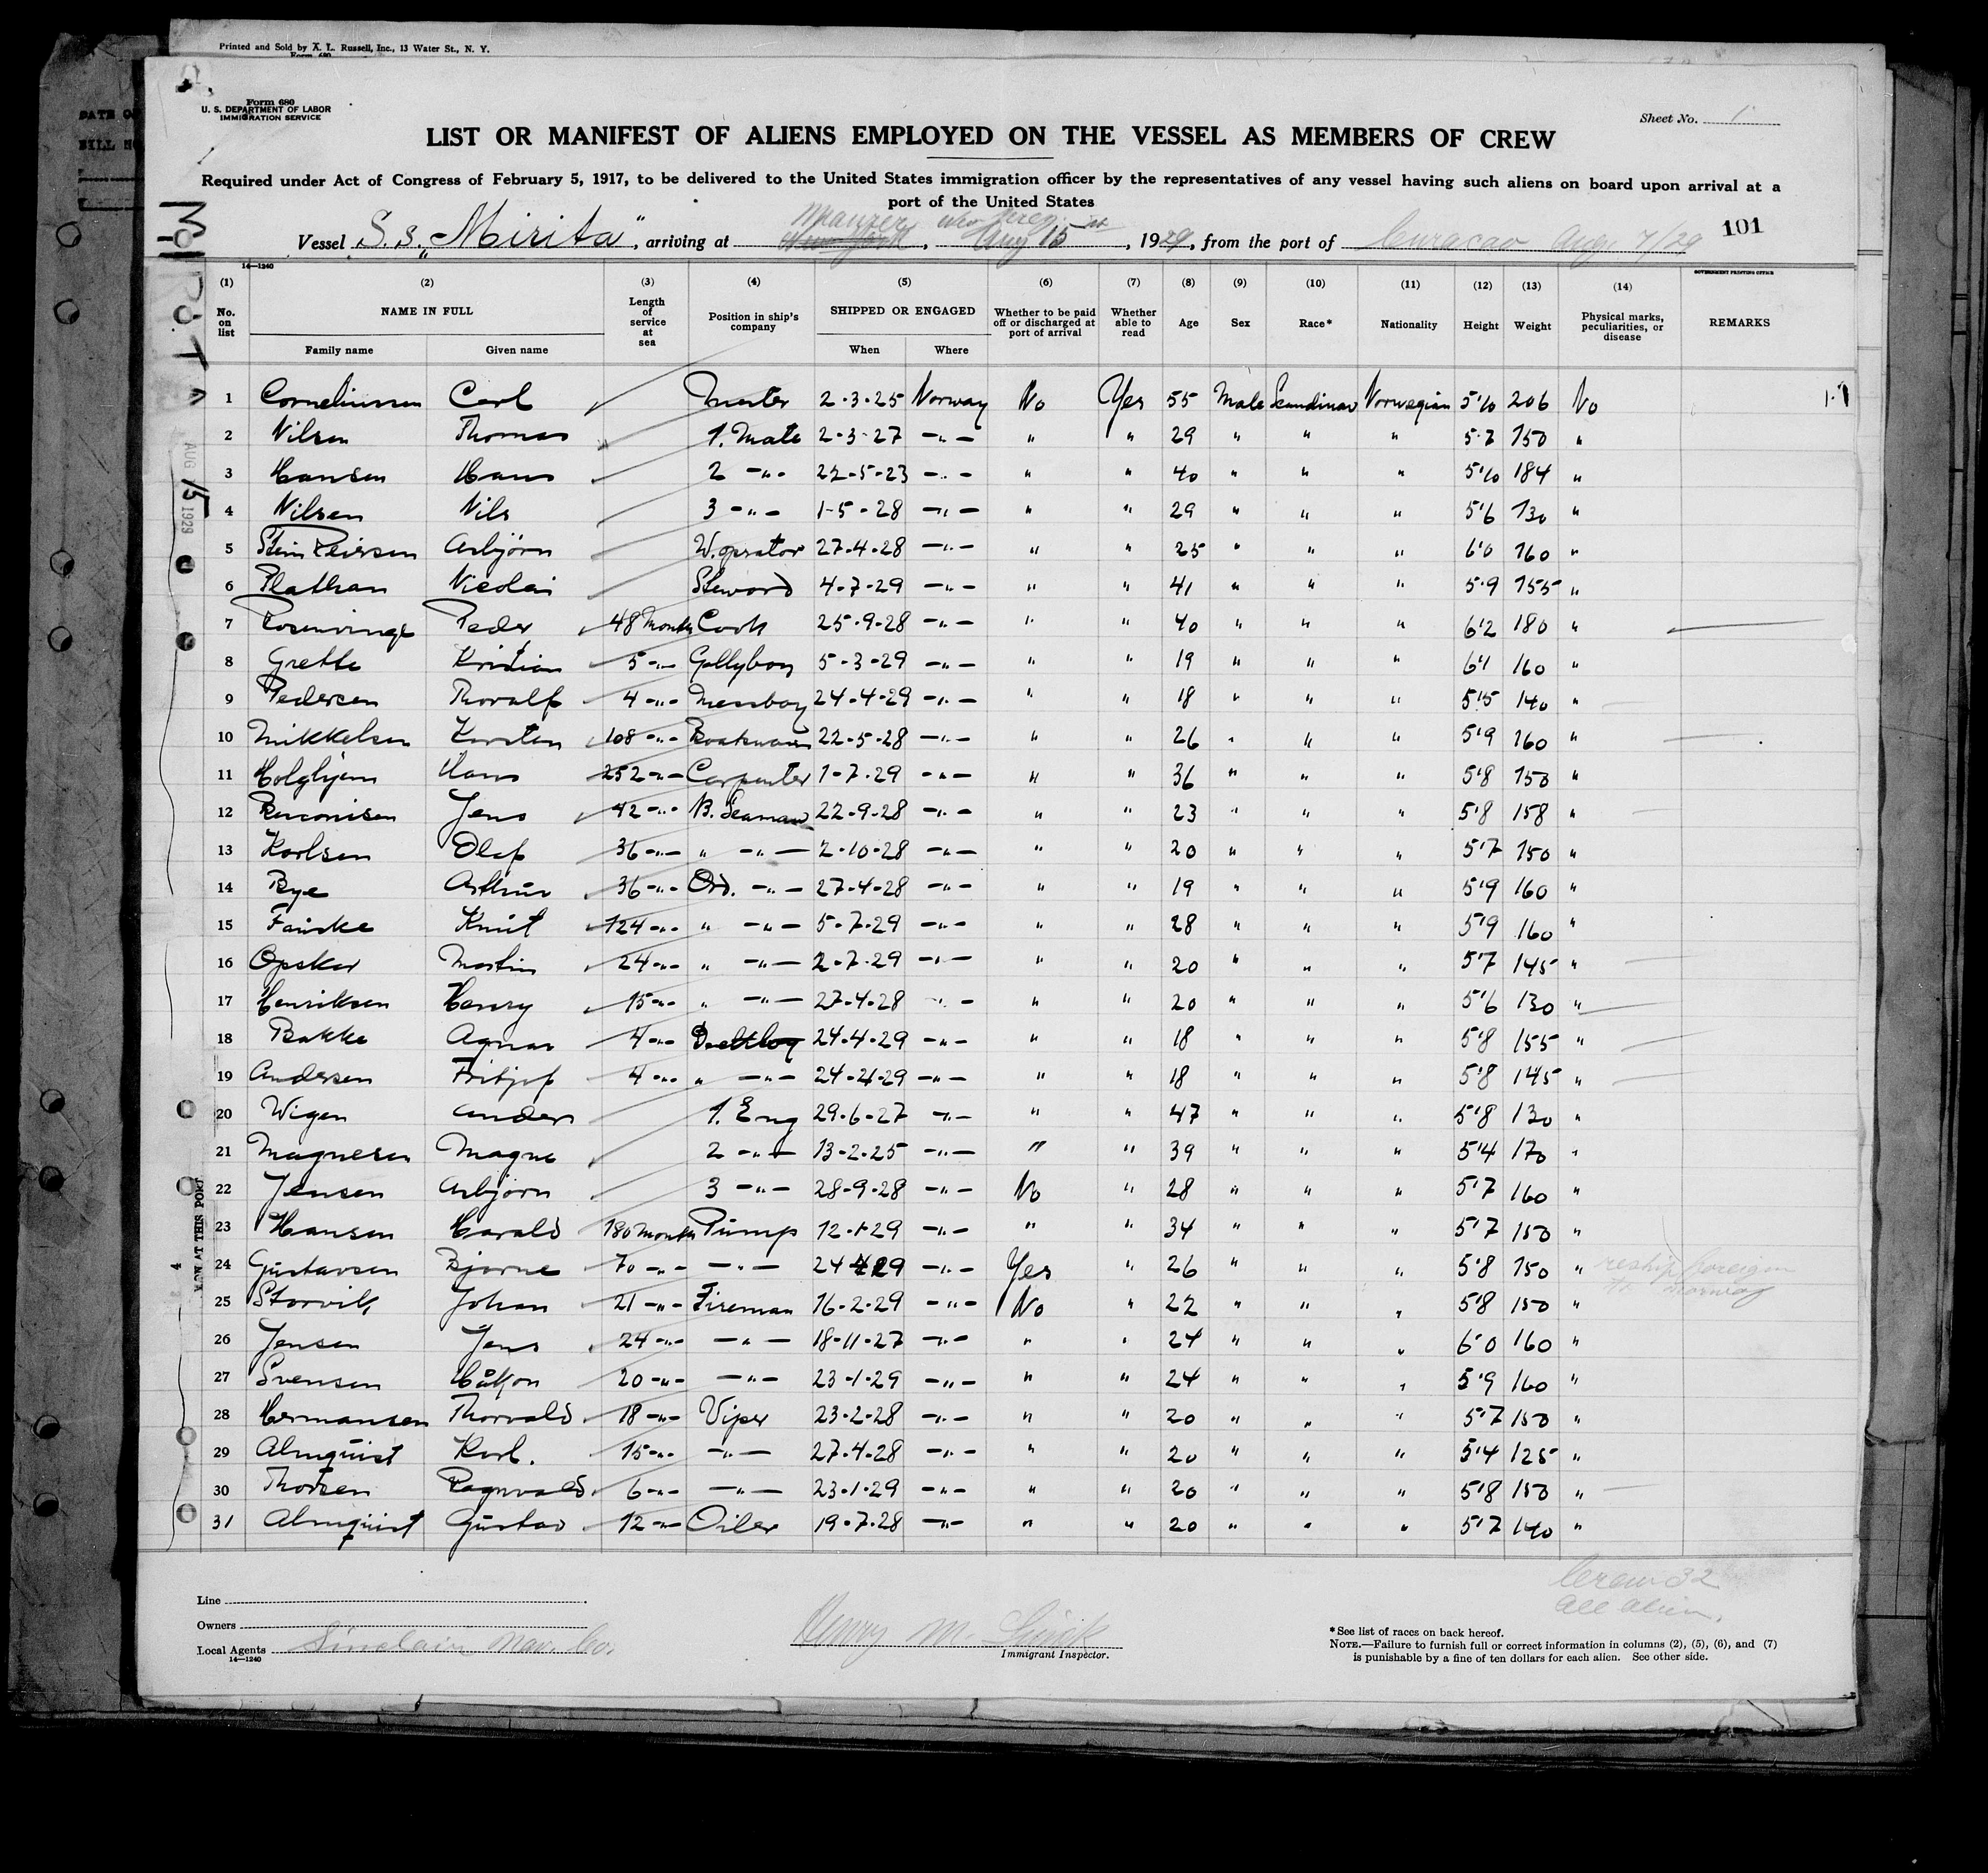 Printed and Sold by A. L. Russell, Inc., 13 Water St., N. Y.
Form 680
U. S. DEPARTMENT OF LABOR
IMMIGRATION SERVICE
Sheet No. 1
LIST OR MANIFEST OF ALIENS EMPLOYED ON THE VESSEL AS MEMBERS OF CREW
Required under Act of Congress of February 5, 1917, to be delivered to the United States immigration officer by the representatives of any vessel having such aliens on board upon arrival at a
port of the United States
101
Vessel S.S. „Mirita", arriving at New York, Aug 15th, 1929, from the port of Curacao Aug. 7/29
14—1240
GOVERNMENT PRINTING OFFICE
(1) (2) (3) (4) (5) (6) (7) (8) (9) (10) (11) (12) (13) (14)
No. on list NAME IN FULL Length of service at sea Position in ship's company SHIPPED OR ENGAGED Whether to be paid off or discharged at port of arrival Whether able to read Age Sex Race* Nationality Height Weight Physical marks, peculiarities, or disease REMARKS
Family name Given name When Where
1 Corneliussen Carl Master 2-3-25 Norway No Yes 55 Male Scandinav Norwegian 5'10 206 No
2 Nilsen Thomas 1. Mate 2-3-27 -"- " " 29 " " " 5'7 150 "
3 Hansen Hans 2 -"- 22-5-23 -"- " " 40 " " " 5'10 184 "
4 Nilsen Nils 3 -"- 1-5-28 -"- " " 29 " " " 5'6 130 "
5 Stein Peirsen Asbjörn W. oprator 27-4-28 -"- " " 25 " " " 6'0 160 "
6 Plathan Nicolai Steword 4-7-29 -"- " " 41 " " " 5'9 155 "
7 Rosenvinge Peder 48 Months Cook 25-9-28 -"- " " 40 " " " 6'2 180 "
8 Grette Kristian 5 -"- Gallyboy 5-3-29 -"- " " 19 " " " 6'1 160 "
9 Pedersen Thoralf 4 -"- Messboy 24-4-29 -"- " " 18 " " " 5'5 140 "
10 Mikkelsen Karsten 108 -"- Boatswain 22-5-28 -"- " " 26 " " " 5'9 160 "
11 Holghjem Hans 252 -"- Carpenter 1-7-29 -"- " " 36 " " " 5'8 150 "
12 Jens 42 -"- B. Seaman 22-9-28 -"- " " 23 " " " 5'8 158 "
13 Karlsen Olaf 36 -"- " -"- 2-10-28 -"- " " 20 " " " 5'7 150 "
14 Bye Arthur 36 -"- Ord. -"- 27-4-28 -"- " " 19 " " " 5'9 160 "
15 Fauske Knut 124 -"- " -"- 5-7-29 -"- " " 28 " " " 5'9 160 "
16 Opskar Martin 24 -"- " -"- 2-7-29 -"- " " 20 " " " 5'7 145 "
17 Henriksen Henry 15 -"- " -"- 27-4-28 -"- " " 20 " " " 5'6 130 "
18 Bakke Agnar 4 -"- Deckboy 24-4-29 -"- " " 18 " " " 5'8 155 "
19 Andersen Fritjof 4 -"- " -"- 24-4-29 -"- " " 18 " " " 5'8 145 "
20 Wigen Anders 1. Eng 29-6-27 -"- " " 47 " " " 5'8 130 "
21 Magnesen Magne 2 -"- 13-2-25 -"- " " 39 " " " 5'4 170 "
22 Jensen Asbjörn 3 -"- 28-9-28 -"- No " 28 " " " 5'7 160 "
23 Hansen Harald 180 Months Pump 12-1-29 -"- " " 34 " " " 5'7 150 "
24 Gustavsen Bjarne 70 -"- -"- 24-4-29 -"- Yes " 26 " " " 5'8 150 " reship foreign
to Norway
25 Storvik Johan 21 -"- Fireman 16-2-29 -"- No " 22 " " " 5'8 150 "
26 Jensen Jens 24 -"- -"- 18-11-27 -"- " " 24 " " " 6'0 160 "
27 Svensen Håkon 20 -"- -"- 23-1-29 -"- " " 24 " " " 5'9 160 "
28 Hermansen Thorvald 18 -"- Viper 23-2-28 -"- " " 20 " " " 5'7 150 "
29 Almquist Karl. 15 -"- -"- 27-4-28 -"- " " 20 " " " 5'4 125 "
30 Thorsen Ragnvald 6 -"- -"- 23-1-29 -"- " " 20 " " " 5'8 150 "
31 Almquist Gustav 12 -"- Oiler 19-7-28 -"- " " 20 " " " 5'7 140 "
AUG 15 1929
Crew 32
all alien.
Line
Owners
Local Agents Sinclair Nav. Co.
14—1240
Immigrant Inspector.
*See list of races on back hereof.
NOTE.—Failure to furnish full or correct information in columns (2), (5), (6), and (7)
is punishable by a fine of ten dollars for each alien. See other side.